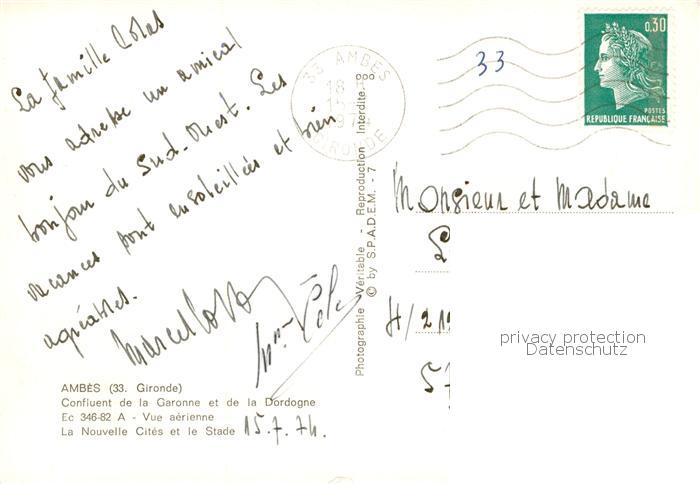 La famille Colas
vous adresse un amical
bonjour du Sud-Ouest. Les
vacances sont ensoleillées et bien
agréables.
Marcel Colas
AMBÈS (33. Gironde)
Confluent de la Garonne et de la Dordogne
Ec 346-82 A - Vue aérienne
La Nouvelle Cités et le Stade
15.7.74.
Photographie Véritable - Reproduction Interdite
© by S.P.A.D.E.M. - 7
33 AMBÈS
18
GIRONDE
33
0,30
POSTES
REPUBLIQUE FRANÇAISE
Monsieur et Madame
H/21
57
privacy protection
Datenschutz